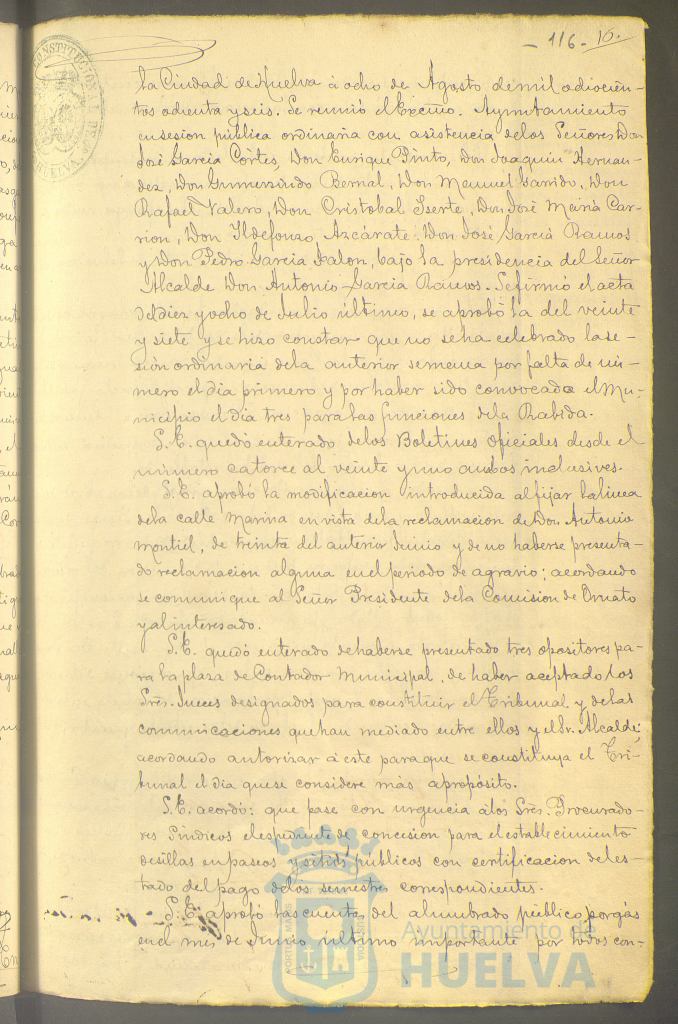 - 116 - 16.
CONSTITUCIONAL DE HUELVA
la Ciudad de Huelva á ocho de Agosto de mil ochocien-
tos ochenta y seis. Se reunió el Excmo. Ayuntamiento
en sesion pública ordinaria con asistencia de los Señores Don
José Garcia Córtes, Don Enrique Pinto, Don Joaquin Hernan-
dez, Don Gumersindo Bernal, Don Manuel Garrido, Don
Rafael Valero, Don Cristobal Iserte, Don José Maria Car-
rion, Don Ildefonso Azcárate. Don José Garcia Ramos
y Don Pedro Garcia Jalon, bajo la presidencia del Señor
Alcalde Don Antonio Garcia Ramos. Se firmó el acta
del diez y ocho de Julio último, se aprobó la del veinte
y siete y se hizo constar que no se ha celebrado la se-
sión ordinaria de la anterior semana por falta de nú-
mero el dia primero y por haber sido convocado el Mu-
nicipio el dia tres para las funciones de la Rabida.
S.E. quedó enterado de los Boletines Oficiales desde el
número catorce al veinte y uno ambos inclusives.
S.E. aprobó la modificacion introducida al fijar la linea
de la calle Marina en vista de la reclamacion de Don Antonio
Montiel, de treinta del anterior Junio y de no haberse presenta-
do reclamacion alguna en el periodo de agravio; acordando
se comunique al Señor Presidente de la Comision de Ornato
y al interesado.
S.E. quedó enterado de haberse presentado tres opositores pa-
ra la plaza de Contador Municipal, de haber aceptado los
Sres. Jueces designados para constituir el Tribunal y de las
comunicaciones que han mediado entre ellos y el Sr. Alcalde;
acordando autorizar á este para que se constituya el Tri-
bunal el dia que se considere más apropósito.
S.E. acordó: que pase con urgencia á los Sres. Procurado-
res Sindicos el espediente de concesion para el establecimiento
de sillas en paseos y sitios públicos con certificacion del es-
tado del pago de los semestres correspondientes.
S.E. aprobó las cuentas del alumbrado público por gás
en el mes de Junio último importante por todos con-
Ayuntamiento de
HUELVA